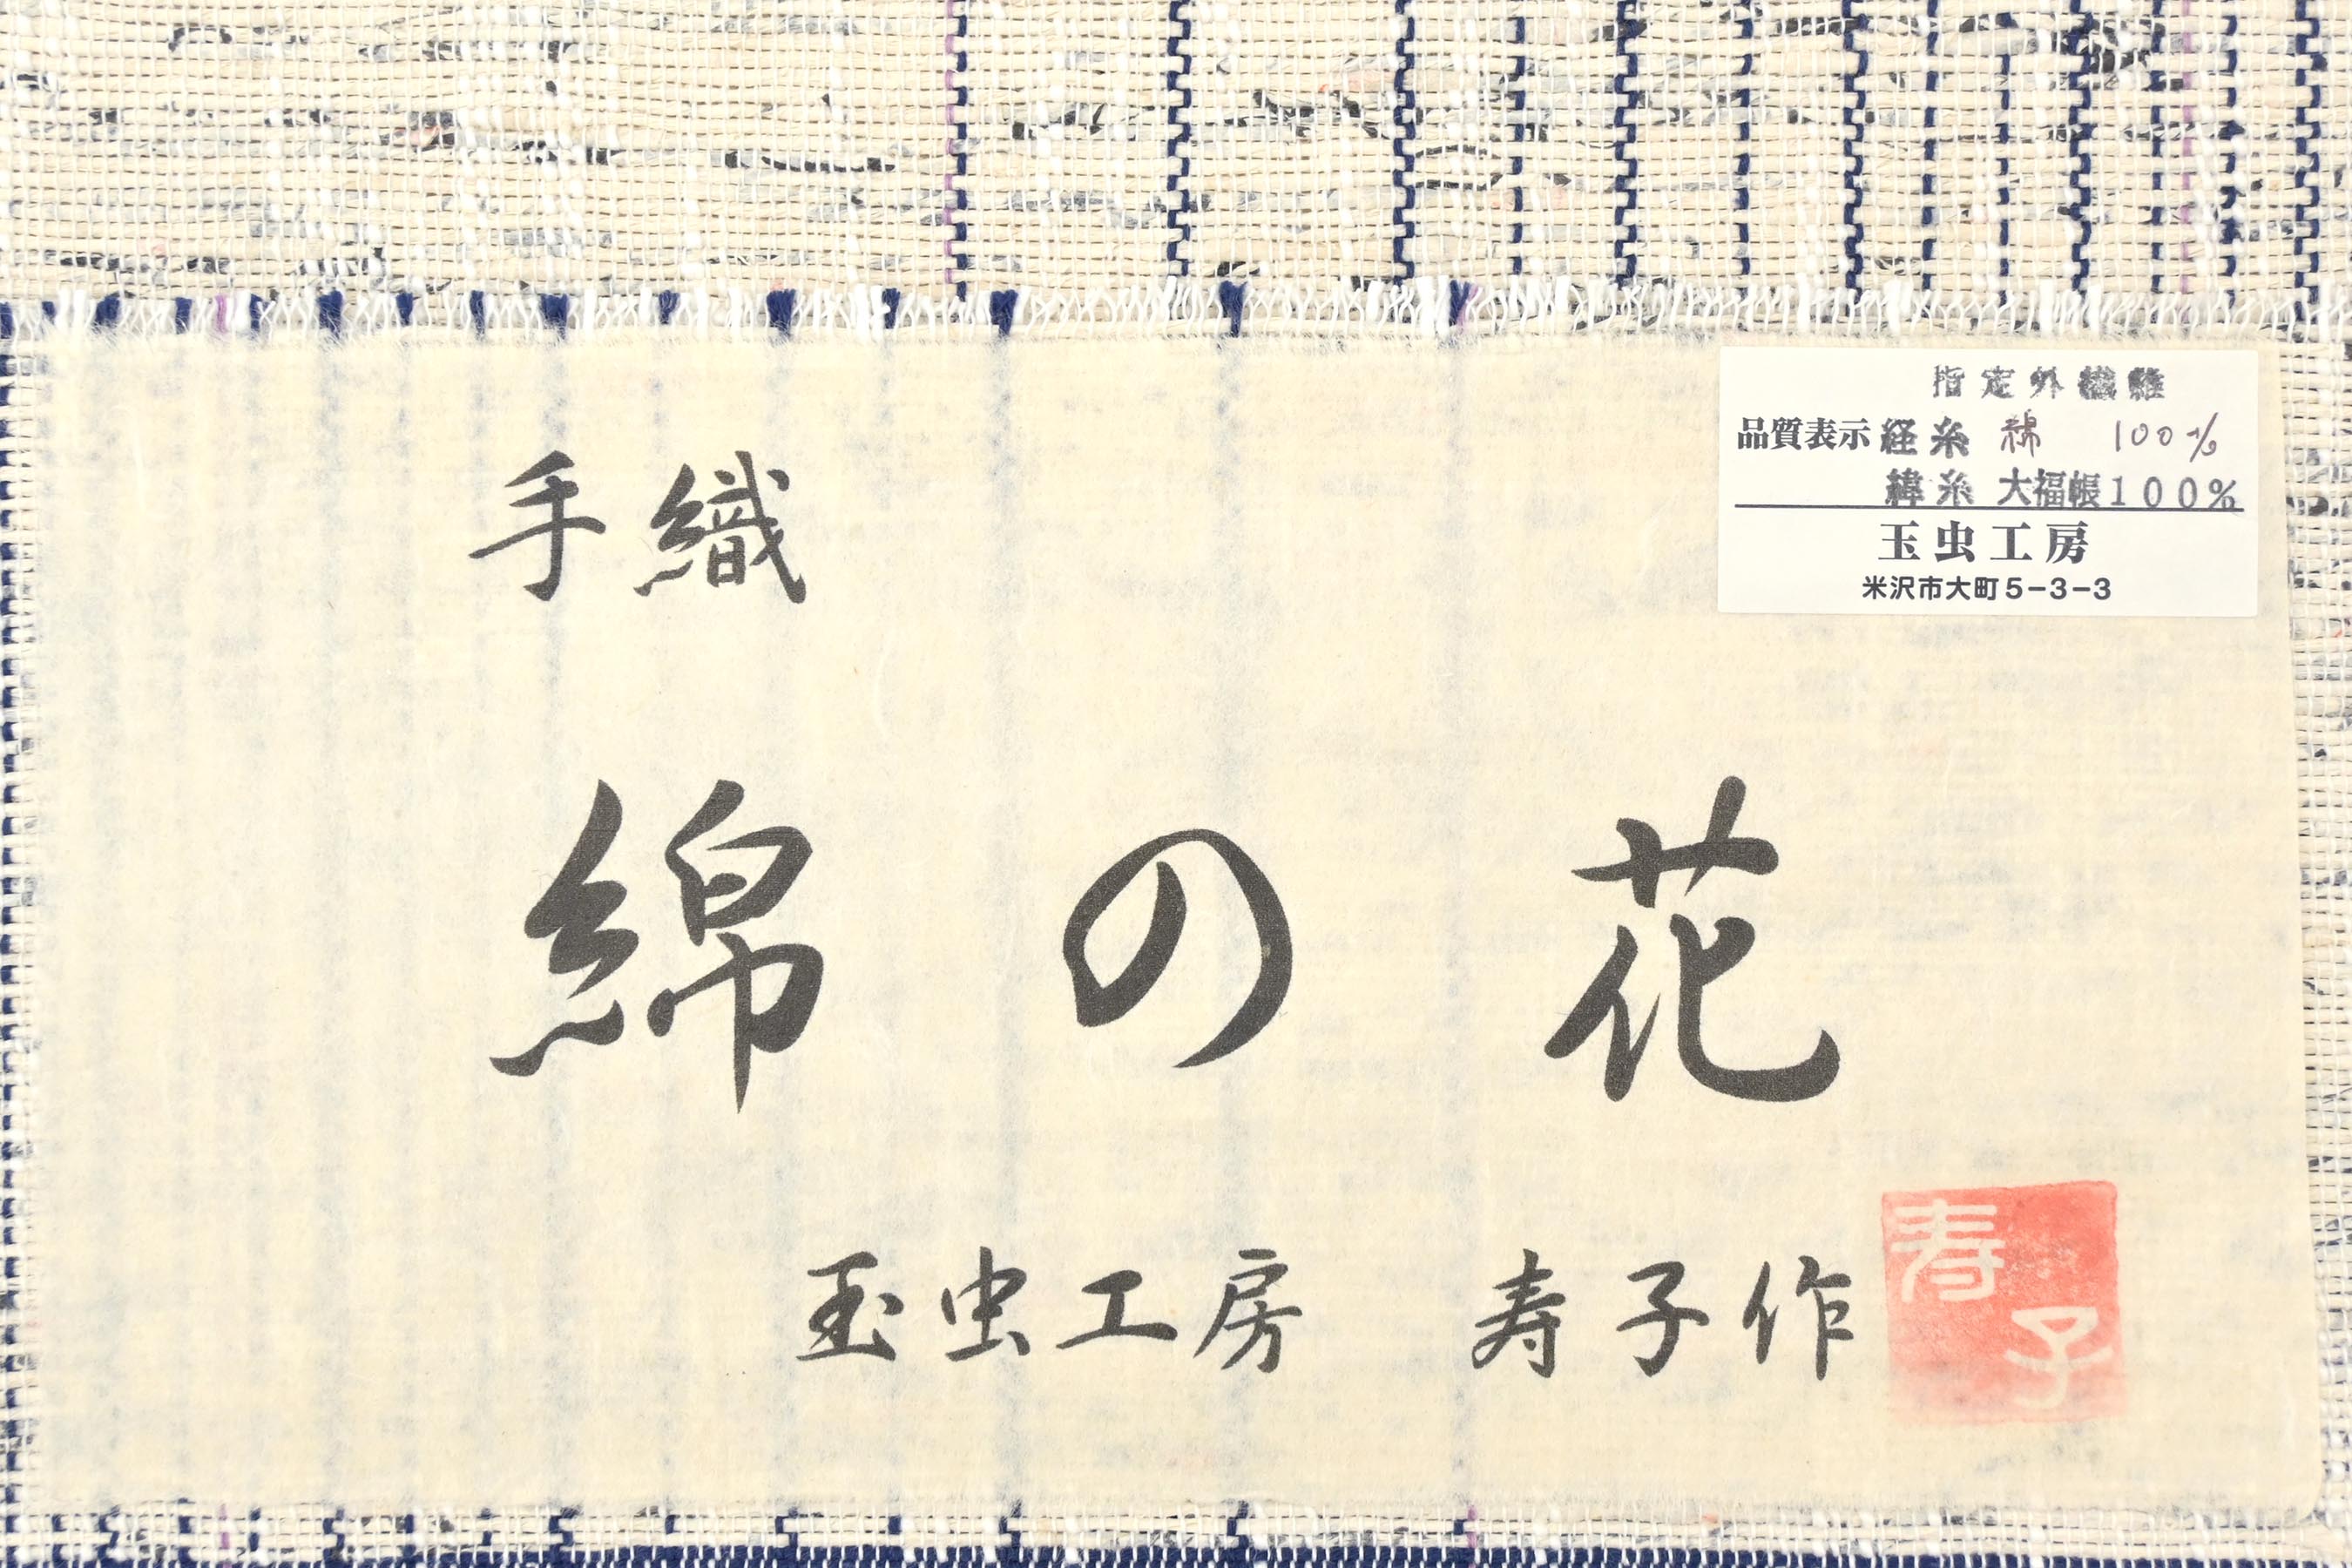 手織
綿の花
玉虫工房 寿子作
寿子
指定外繊維
品質表示 経糸 綿 100%
緯糸 大福帳100%
玉虫工房
米沢市大町5-3-3